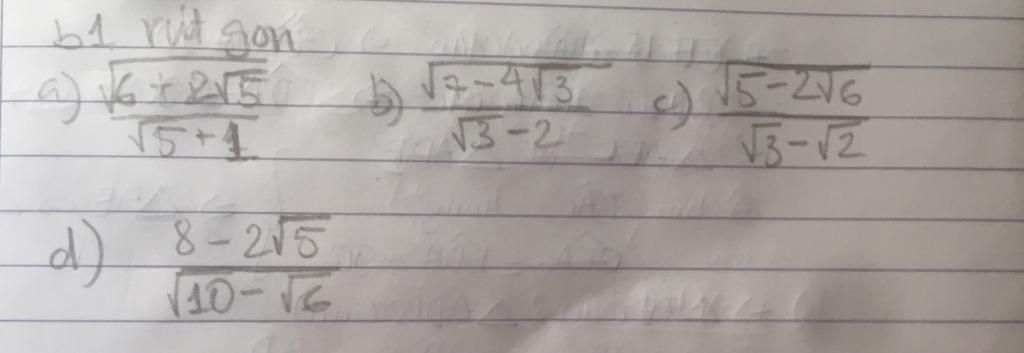 b1 rút gọn
a) √(6 + 2√5) / (√5 + 1) b) √(7 - 4√3) / (√3 - 2) c) √(5 - 2√6) / (√3 - √2)
d) (8 - 2√5) / (√10 - √6)